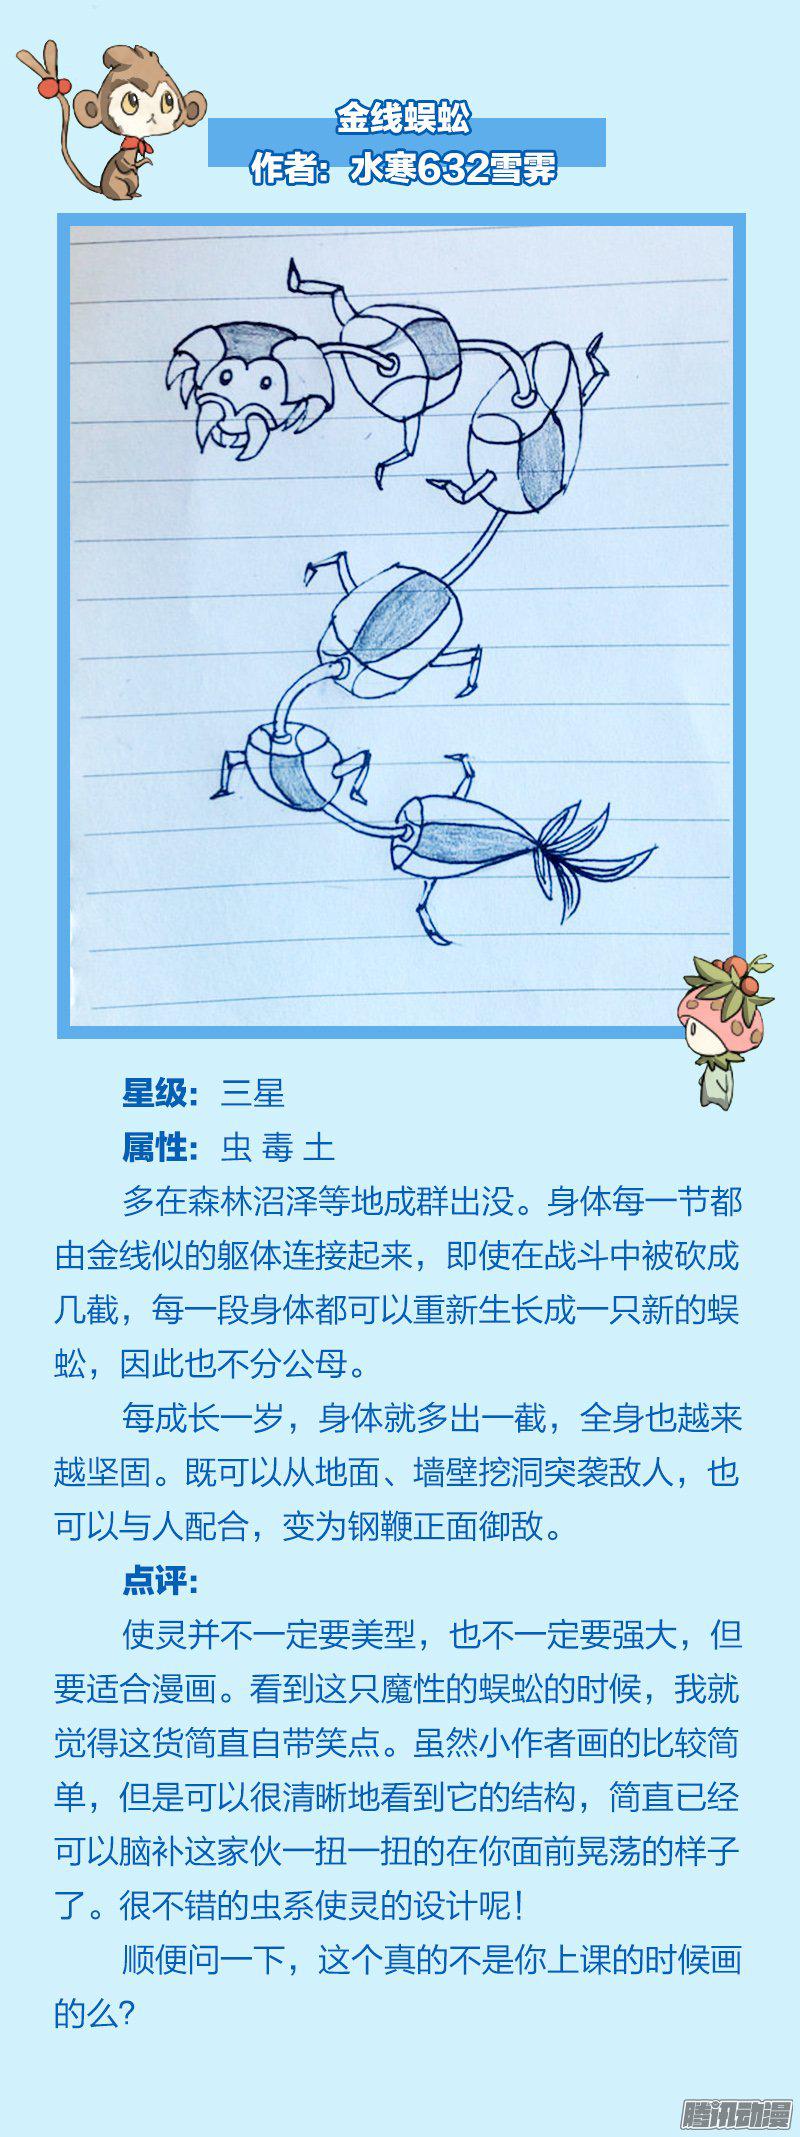 金线蜈蚣
作者：水寒632雪霁
星级：三星
属性：虫 毒 土
多在森林沼泽等地成群出没。身体每一节都
由金线似的躯体连接起来，即使在战斗中被砍成
几截，每一段身体都可以重新生长成一只新的蜈
蚣，因此也不分公母。
每成长一岁，身体就多出一截，全身也越来
越坚固。既可以从地面、墙壁挖洞突袭敌人，也
可以与人配合，变为钢鞭正面御敌。
点评：
使灵并不一定要美型，也不一定要强大，但
要适合漫画。看到这只魔性的蜈蚣的时候，我就
觉得这货简直自带笑点。虽然小作者画的比较简
单，但是可以很清晰地看到它的结构，简直已经
可以脑补这家伙一扭一扭的在你面前晃荡的样子
了。很不错的虫系使灵的设计呢！
顺便问一下，这个真的不是你上课的时候画
的么？
腾讯动漫